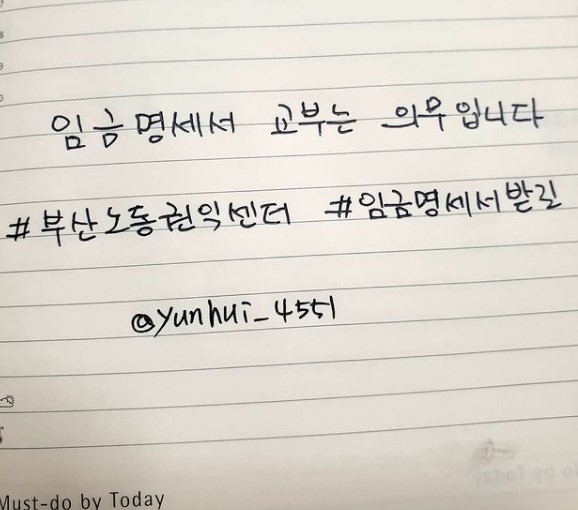 임금명세서 교부는 의무입니다
#부산노동권익센터 #임금명세서받길
@yunhui_4551
Must-do by Today